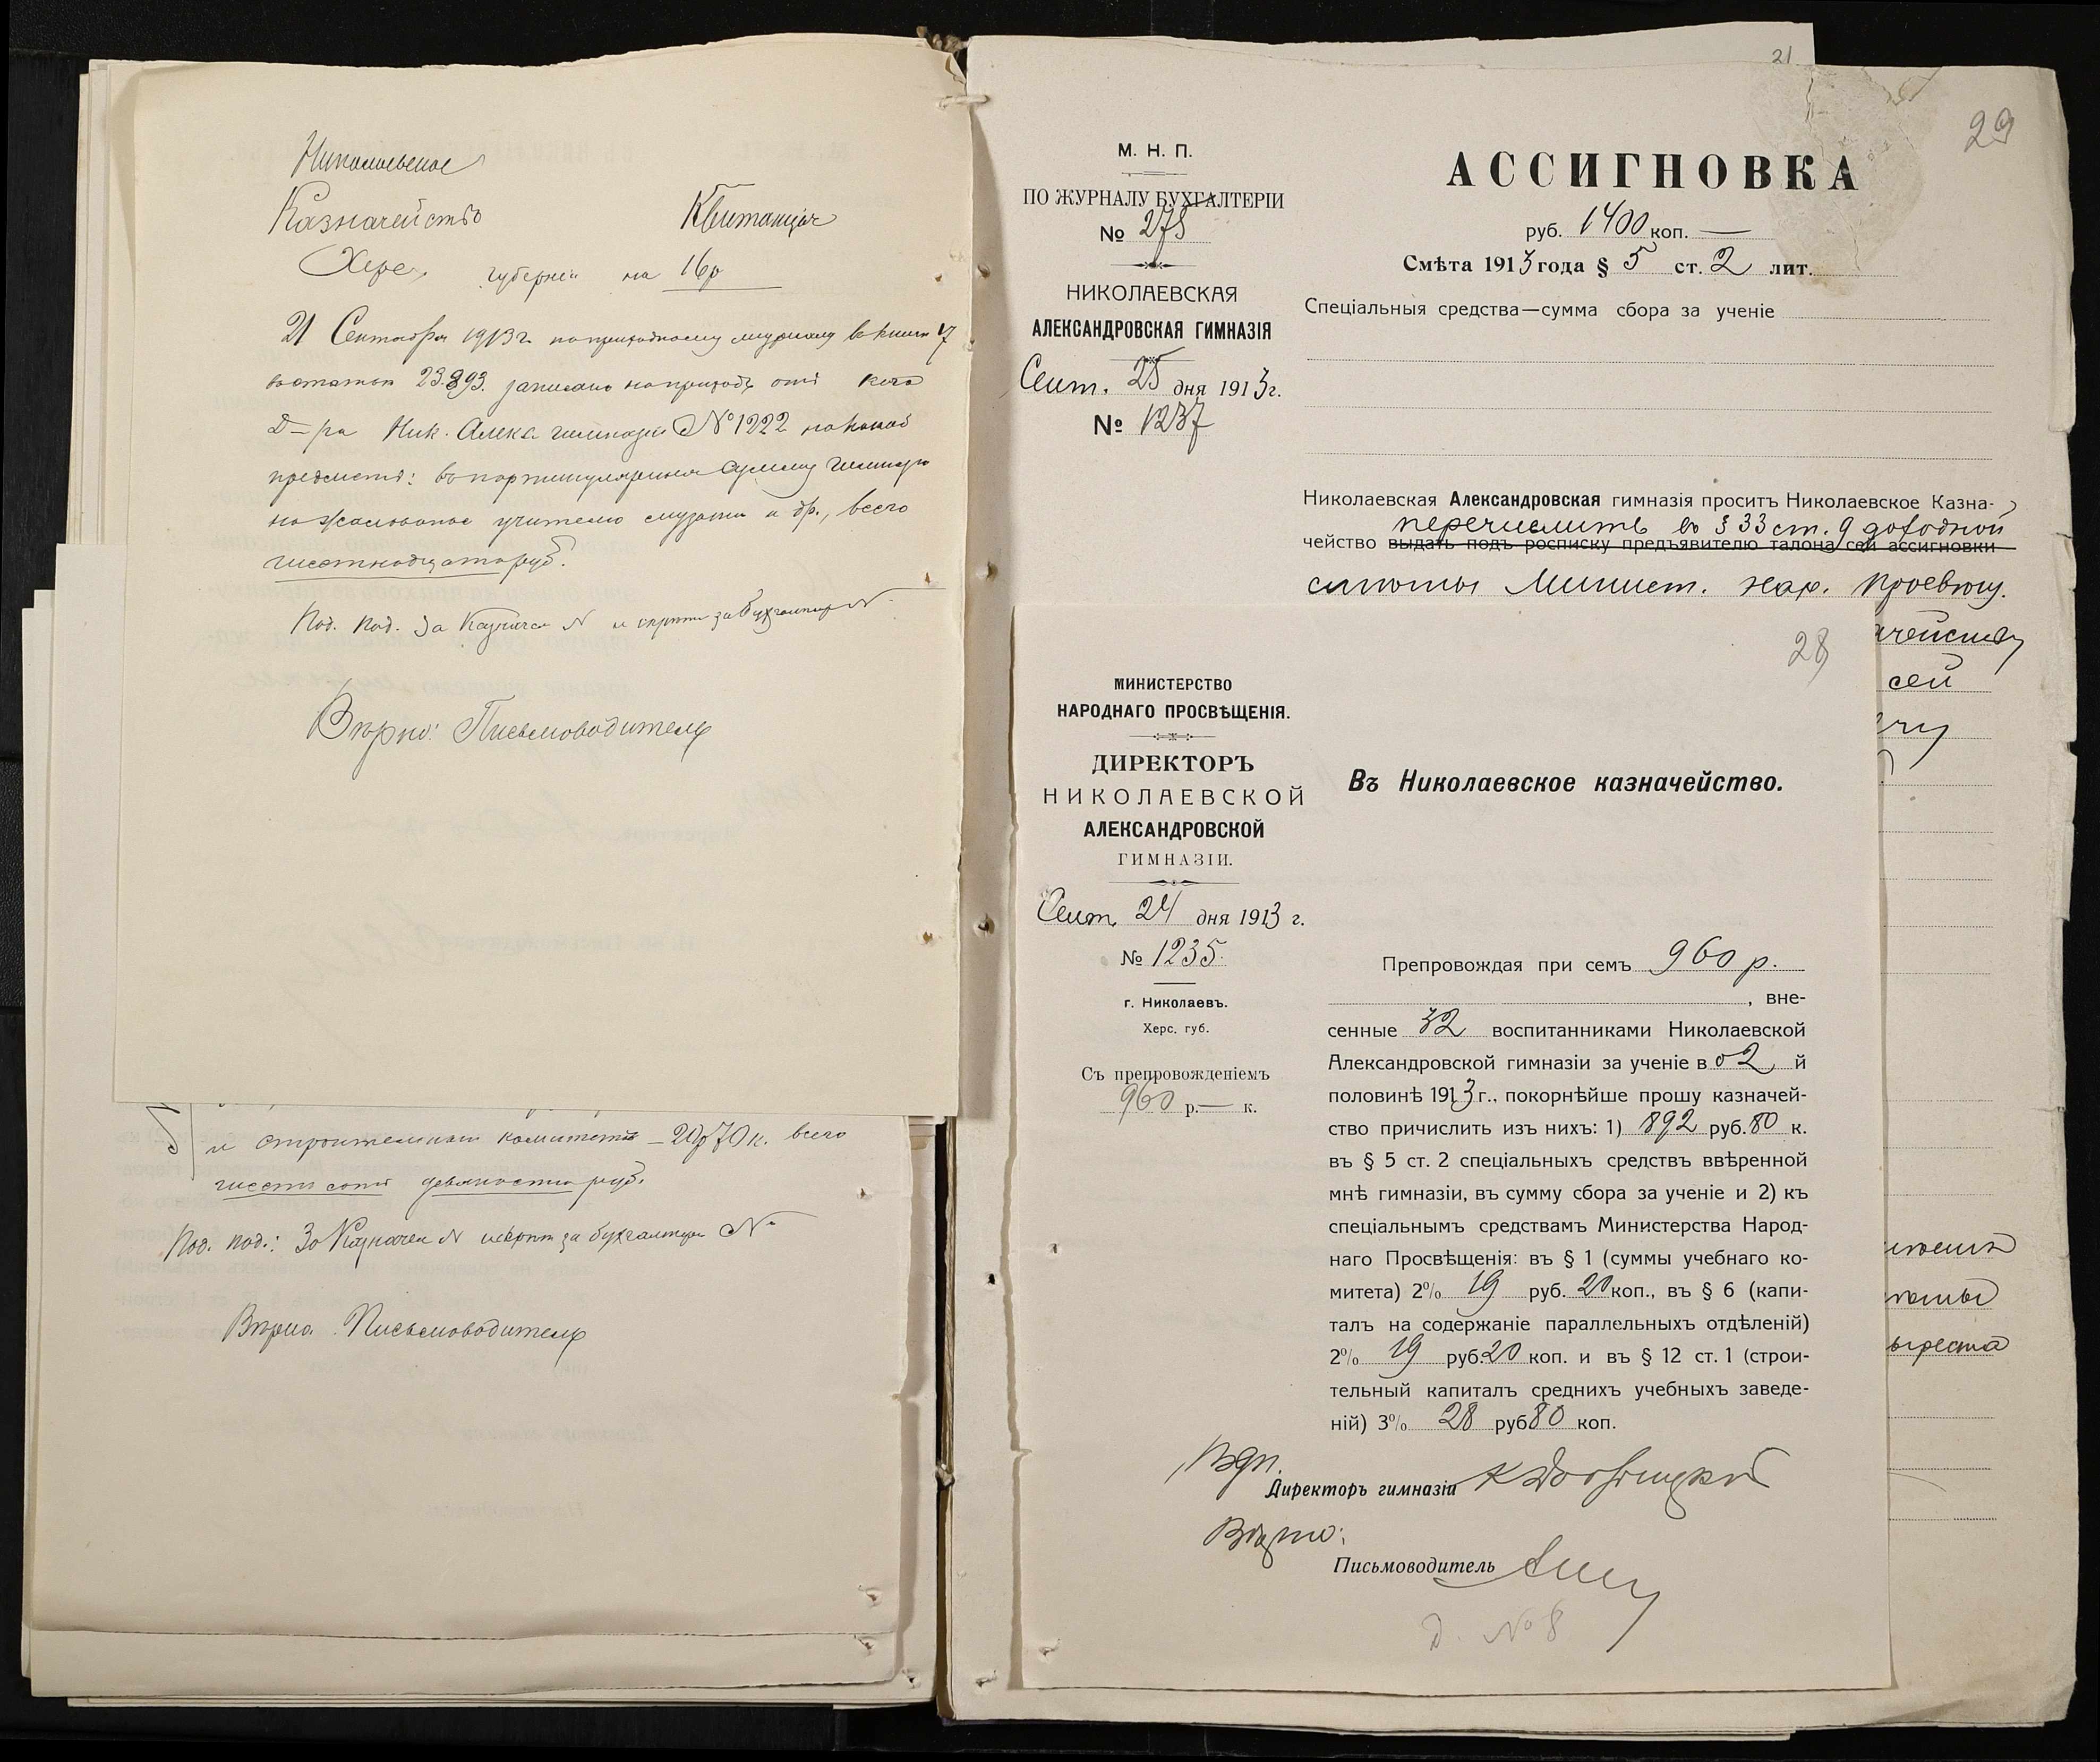 Николаевское
Казначейство Квитанция
Херс. губернии на 16 р
21 Сентября 1913 г. по приходному журналу в книге 17
въ статьи 23.893. записано на приходъ отъ кого
Д–ра Ник. Алекс. гимназіи № 1222 на какой
предметъ: въ партикулярныя суммы гимназіи
на жалованье учителю музыки и др., всего
шестнадцать руб.
Под. под. За Казначея N и скрепит за Бухгалтера N.
Вѣрно: Письмоводитель
и строительный комитетъ – 20 р 70 к. всего
шесть сотъ девяносто руб.
Под. под.: За Казначея N и скрепит за бухгалтера N
Вѣрно. Письмоводитель
21
29
М. Н. П.
ПО ЖУРНАЛУ БУХГАЛТЕРІИ
№ 278
НИКОЛАЕВСКАЯ
АЛЕКСАНДРОВСКАЯ ГИМНАЗІЯ
Сент. 25 дня 1913 г.
№ 1237
АССИГНОВКА
руб. 1400 коп. —
Смѣта 1913 года § 5 ст. 2 лит.
Спеціальныя средства—сумма сбора за ученіе
Николаевская Александровская гимназія проситъ Николаевское Казна-
перечислить въ § 33 ст. 9 доходной
чейство выдать подъ росписку предъявителю талона сей ассигновки
смѣты Минист. нар. просвѣщ.
сей
28
МИНИСТЕРСТВО
НАРОДНАГО ПРОСВѢЩЕНІЯ.
ДИРЕКТОРЪ
НИКОЛАЕВСКОЙ
АЛЕКСАНДРОВСКОЙ
ГИМНАЗІИ.
Сент. 24 дня 1913 г.
№ 1235.
г. Николаевъ.
Херс. губ.
Съ препровожденіемъ
960 р. — к.
Въ Николаевское казначейство.
Препровождая при семъ 960 р.
, вне-
сенные 32 воспитанниками Николаевской
Александровской гимназіи за ученіе во 2 й
половинѣ 1913 г., покорнѣйше прошу казначей-
ство причислить изъ нихъ: 1) 892 руб. 80 к.
въ § 5 ст. 2 спеціальныхъ средствъ ввѣренной
мнѣ гимназіи, въ сумму сбора за ученіе и 2) къ
спеціальнымъ средствамъ Министерства Народ-
наго Просвѣщенія: въ § 1 (суммы учебнаго ко-
митета) 2% 19 руб. 20 коп., въ § 6 (капи-
талъ на содержаніе параллельныхъ отдѣленій)
2% 19 руб. 20 коп. и въ § 12 ст. 1 (строи-
тельный капиталъ среднихъ учебныхъ заведе-
ній) 3% 28 руб 80 коп.
Директоръ гимназіи
Вѣрно:
Письмоводитель
Д. № 8